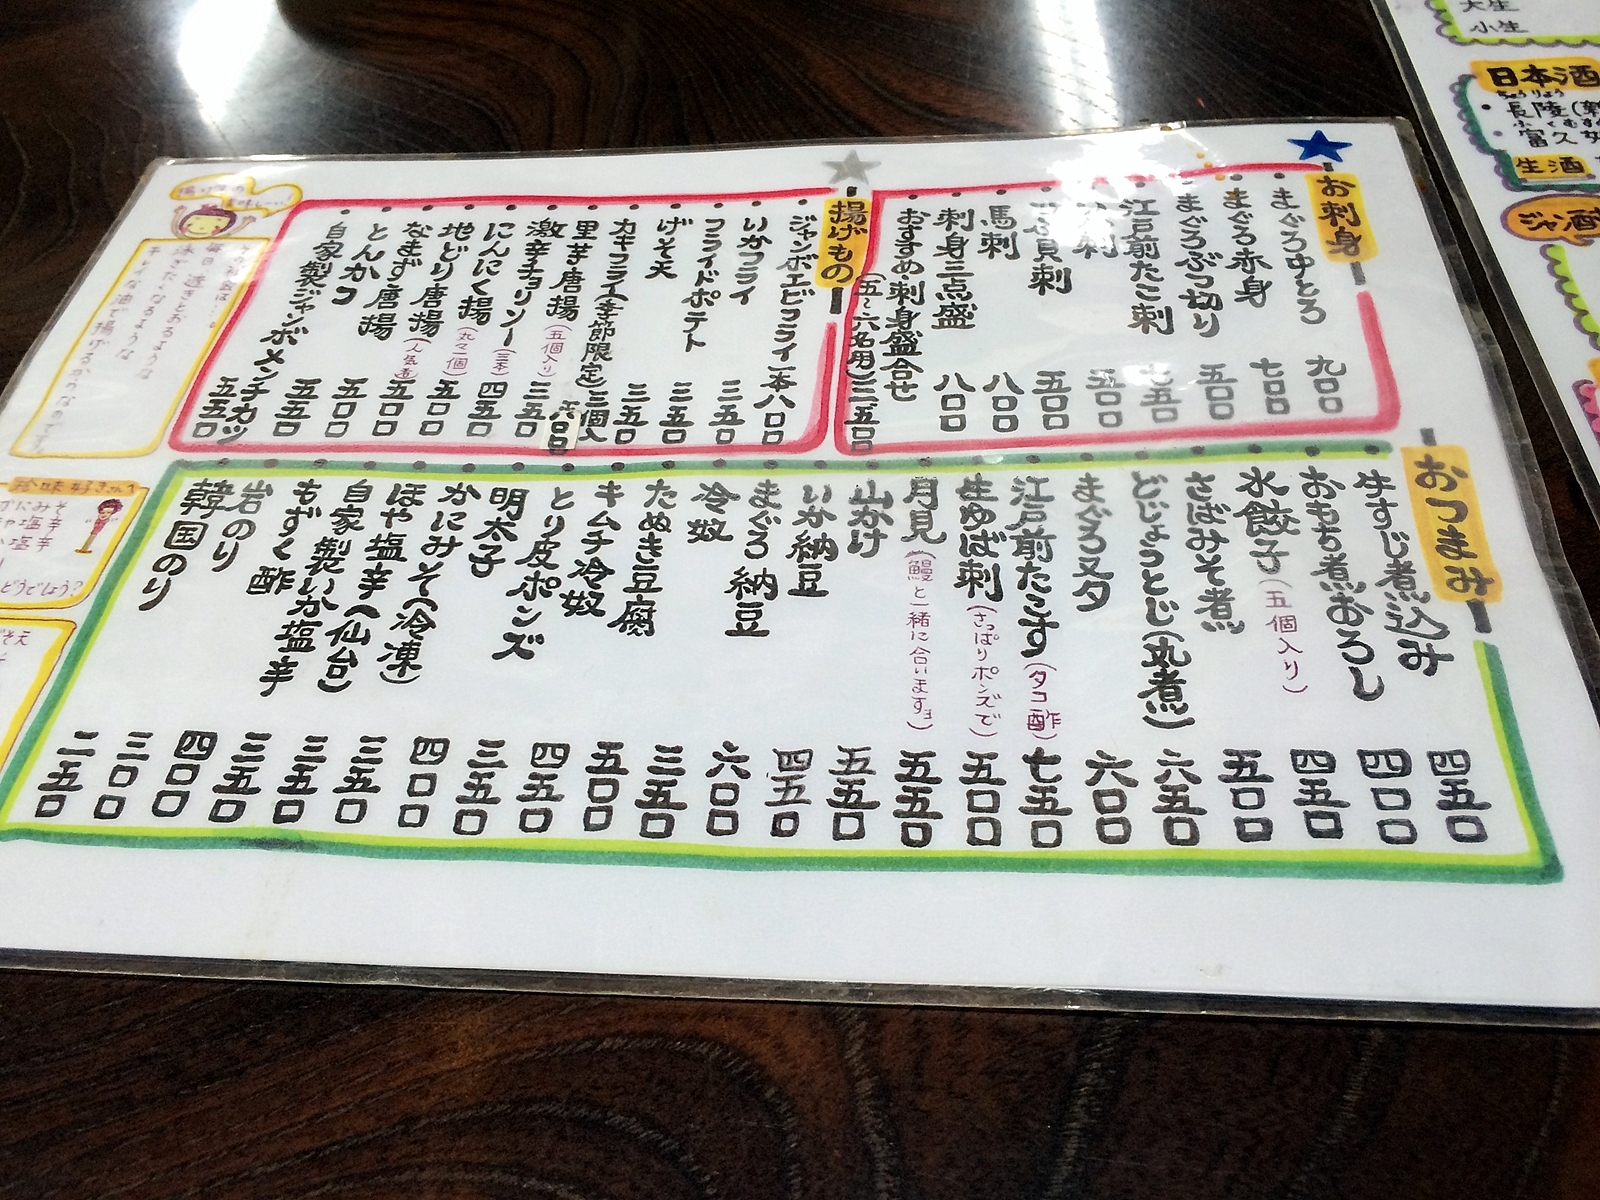 お刺身
まぐろ中とろ 九〇〇
まぐろ赤身 七〇〇
まぐろぶつ切り 五〇〇
江戸前たこ刺 七五〇
刺 五〇〇
貝刺 五〇〇
馬刺 八〇〇
刺身三点盛 八〇〇
おすすめ刺身盛合せ
(五〜六名用)三、五〇〇
揚げもの
ジャンボエビフライ一本八〇〇
いかフライ 三五〇
フライドポテト 三五〇
げそ天 三五〇
カキフライ(季節限定)三個入
里芋唐揚(五個入り) 三五〇
激辛チョリソー(三本) 四五〇
にんにく揚(丸々一個) 五〇〇
地どり唐揚 五〇〇
なまず唐揚 五〇〇
とんかつ 五五〇
自家製ジャンボメンチカツ 五五〇
おつまみ
牛すじ煮込み 四五〇
おもち煮おろし 四〇〇
水餃子(五個入り) 四五〇
さばみそ煮 五〇〇
どじょうとじ(丸煮) 六五〇
まぐろヌタ 六〇〇
江戸前たこす(タコ酢) 七五〇
生ゆば刺(さっぱりポンズで) 五〇〇
月見(鰻と一緒に合いますヨ) 五五〇
山かけ 五五〇
いか納豆 四五〇
まぐろ納豆 六〇〇
冷奴 三五〇
たぬき豆腐 五〇〇
キムチ冷奴 四五〇
とり皮ポンズ 三五〇
明太子 四〇〇
かにみそ(冷凍) 三五〇
ほや塩辛(仙台) 三五〇
自家製いか塩辛 三五〇
もずく酢 四〇〇
岩のり 三〇〇
韓国のり 二五〇
珍味好きの
どうでしょう?
大生
小生
日本酒
長陵
富久
生酒